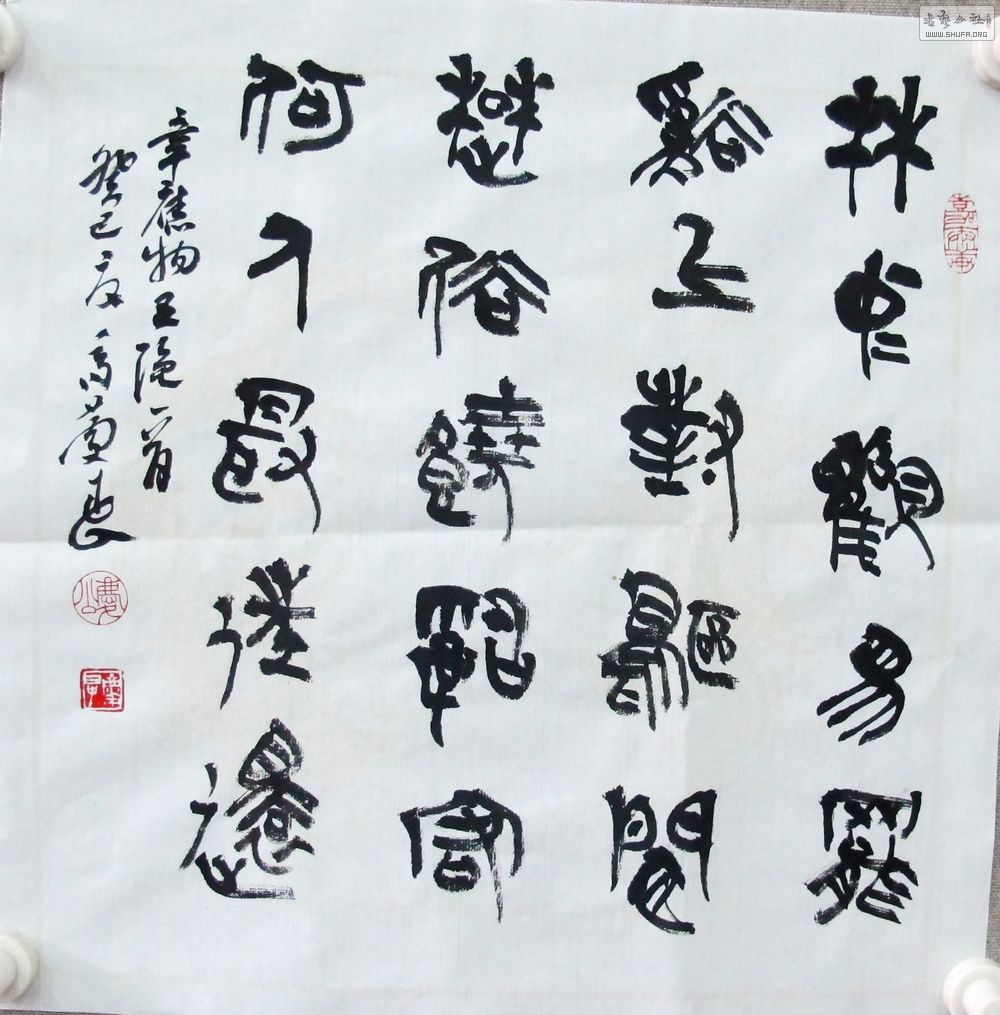 林中觀易罷
谿上對鷗閒
楚俗饒詞客
何人最往還
韋應物五绝一首
癸巳夏
書藝公社
WWW.SHUFA.ORG